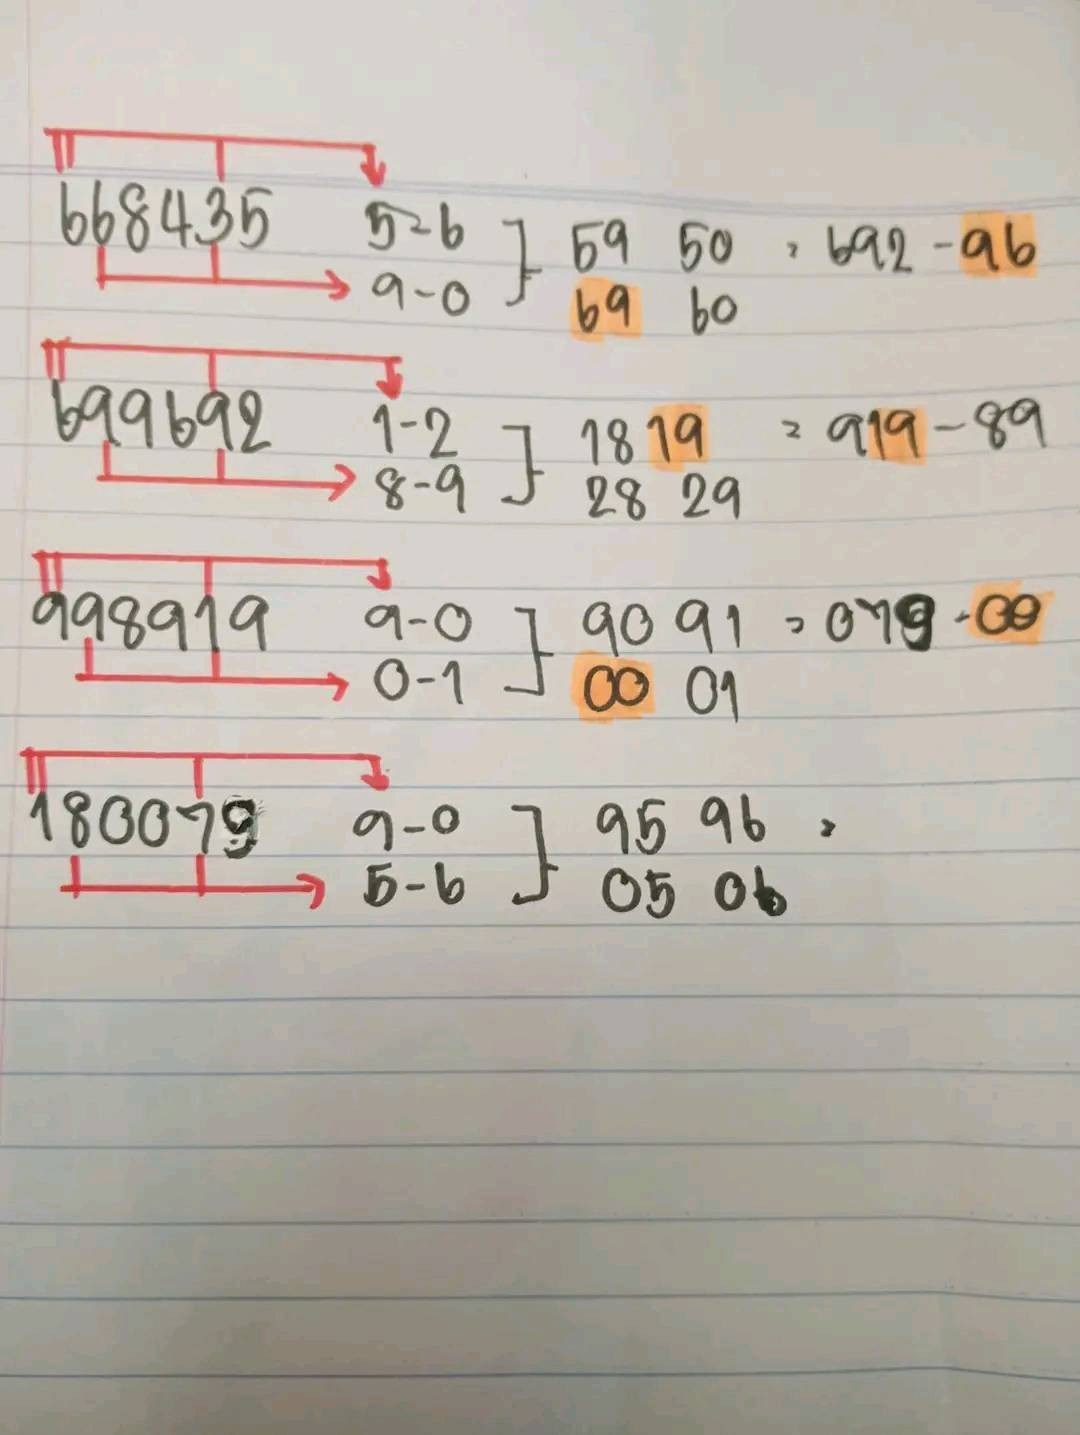 668435 5-6 59 50 = 692 - 96
9-0 69 60
699692 1-2 18 19 = 919 - 89
8-9 28 29
998919 9-0 90 91 = 079 - 00
0-1 00 01
180079 9-0 95 96 =
5-6 05 06